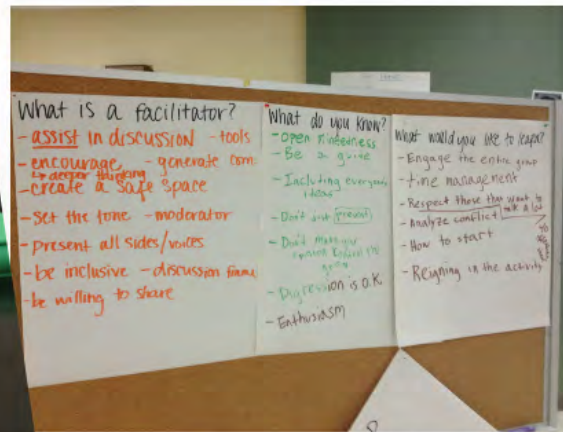 What is a facilitator?
- assist in discussion - tools
- encourage - generate com
↳ deeper thinking
- create a safe space
- set the tone - moderator
- present all sides/voices
- be inclusive - discussion frame
- be willing to share
What do you know?
- Open Mindedness
- Be a guide
- Including everyone's
ideas
- Don't just present
- Don't make your
opinion the
- Digression is O.K
- Enthusiasm
What would you like to learn?
- Engage the entire group
- time management
- Respect those that want to
talk a lot
- Analyze conflict
- How to start
- Reigning in the activity